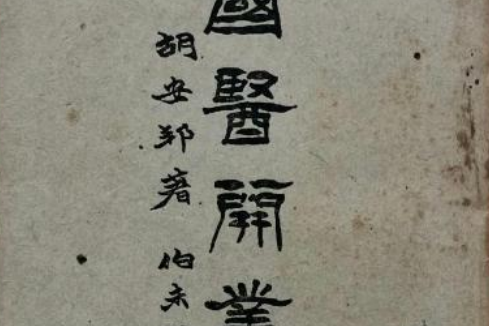 國醫開業
胡安邦著 伯未